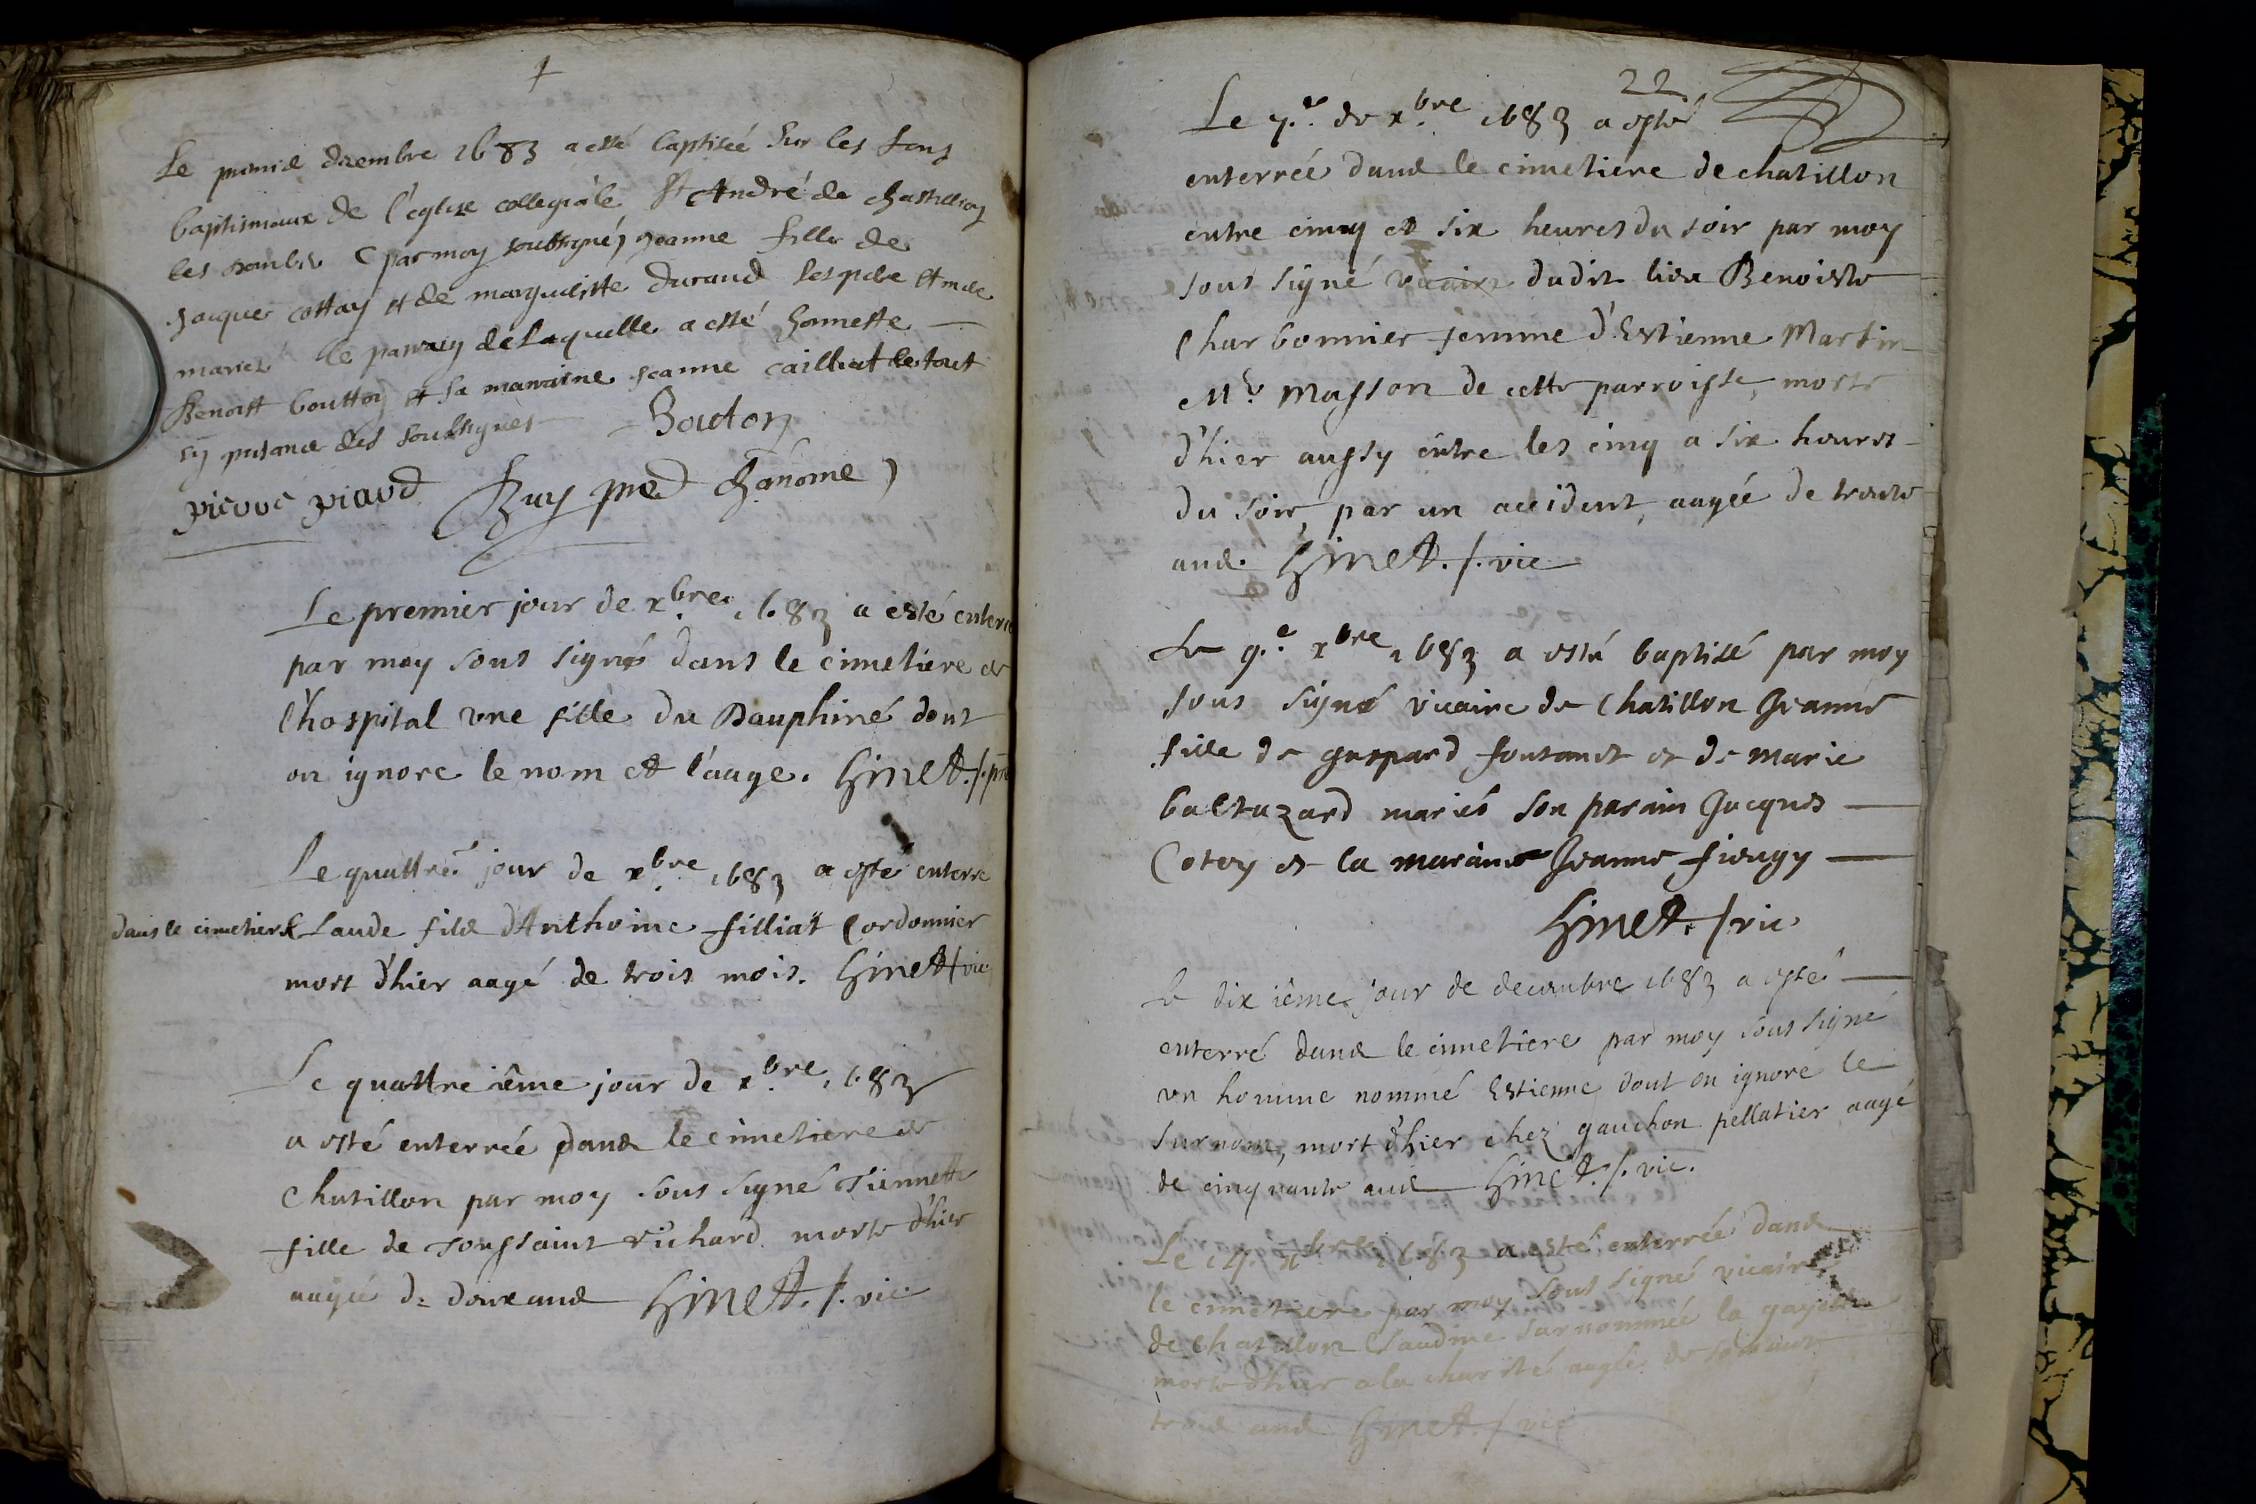 Le premie decembre 1683 a esté baptiseé sur les fons
baptismaux de l'eglise collegiale St André de chastillon
les dombes par moy soubsigné, jeanne fille de
jacque cottay et de margueritte durand ses pere et mere
mariez le parrain de laquelle a esté honneste
Benoist boutton et sa marraine jeanne caillat le tout
en presence des soubsignes Bouton
pierre piaud Buy chanoine
Le premier jour de xbre 1683 a esté enterré
par moy sous signé dans le cimetiere de
l'hospital une fille du Dauphiné dont
on ignore le nom et l'aage. Ginet./. pre
Le quattre jour de xbre 1683 a esté enterré
dans le cimetiere Claude filz d'Anthoine filliat Cordonnier
mort d'hier aagé de trois mois. Ginet/vic
Le quattre ième jour de xbre 1683
a esté enterrée dans le cimetiere de
Chatillon par moy sous signé Tiennette
fille de Toussaint richard morte d'hier
aagée de douze ans Ginet./. vic.
22
Le 7e. de xbre 1683 a esté
enterrée dans le cimetiere de chatillon
entre cinq et six heures du soir par moy
sous signé vicaire dudit lieu Benoiste
Charbonnier femme d'Estienne Martin
Me Masson de cette parroisse, morte
d'hier aussy entre les cinq a six heures
du soir, par un accident, aagée de trente
ans. Ginet./. vic
Le 9.e xbre 1683 a esté baptisé par moy
sous signé vicaire de Chatillon Jeanne
fille de gaspard fontanet et de marie
baltazard mariés son parain Jacques
Cotey et la maraine Jeanne fieugy
Ginet./vic
Le dix ième jour de decembre 1683 a esté
enterré dans le cimetiere par moy sous signé
un homme nommé Estienne dont on ignore le
surnom, mort d'hier chez gauchon pellatier aagé
de cinquante ans Ginet./. vic.
Le 14. xbre 1683 a esté enterrée dans
le cimetiere par moy sous signé vicaire
de Chatillon Claudine surnommée la gayette
morte d'hier a la charité aagée de soixante
trois ans Ginet./ vic